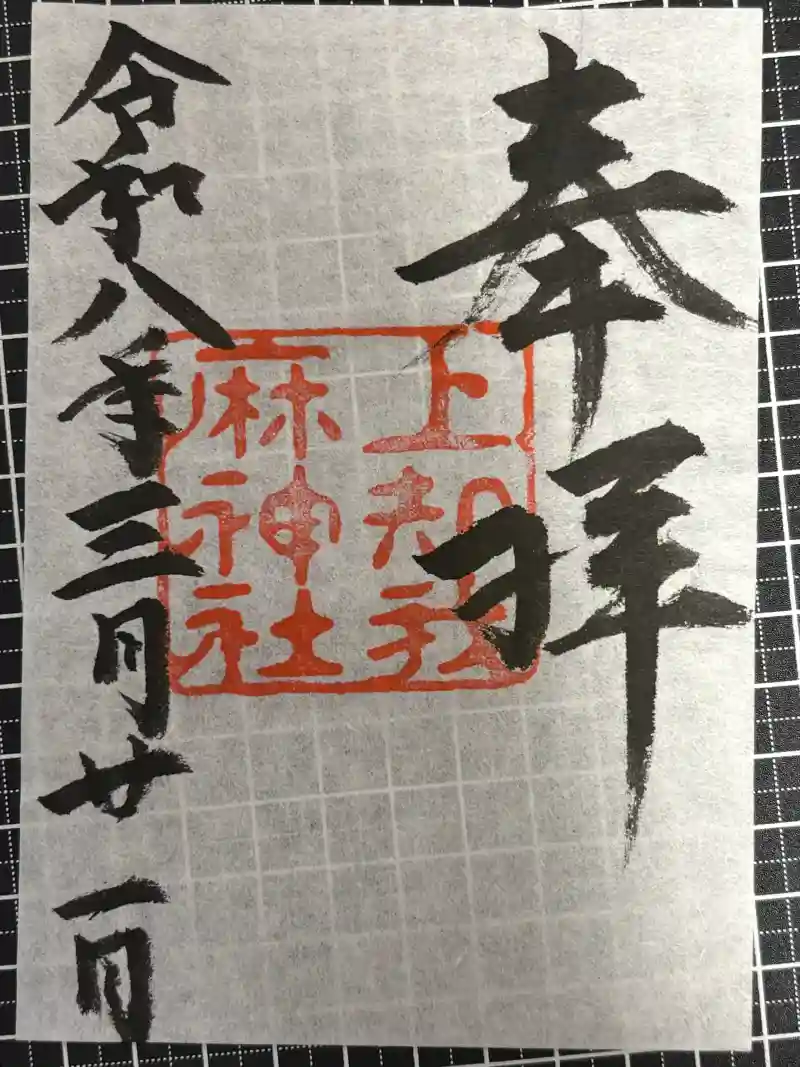 奉拝
上知我
麻神社
令和八年三月廿一日